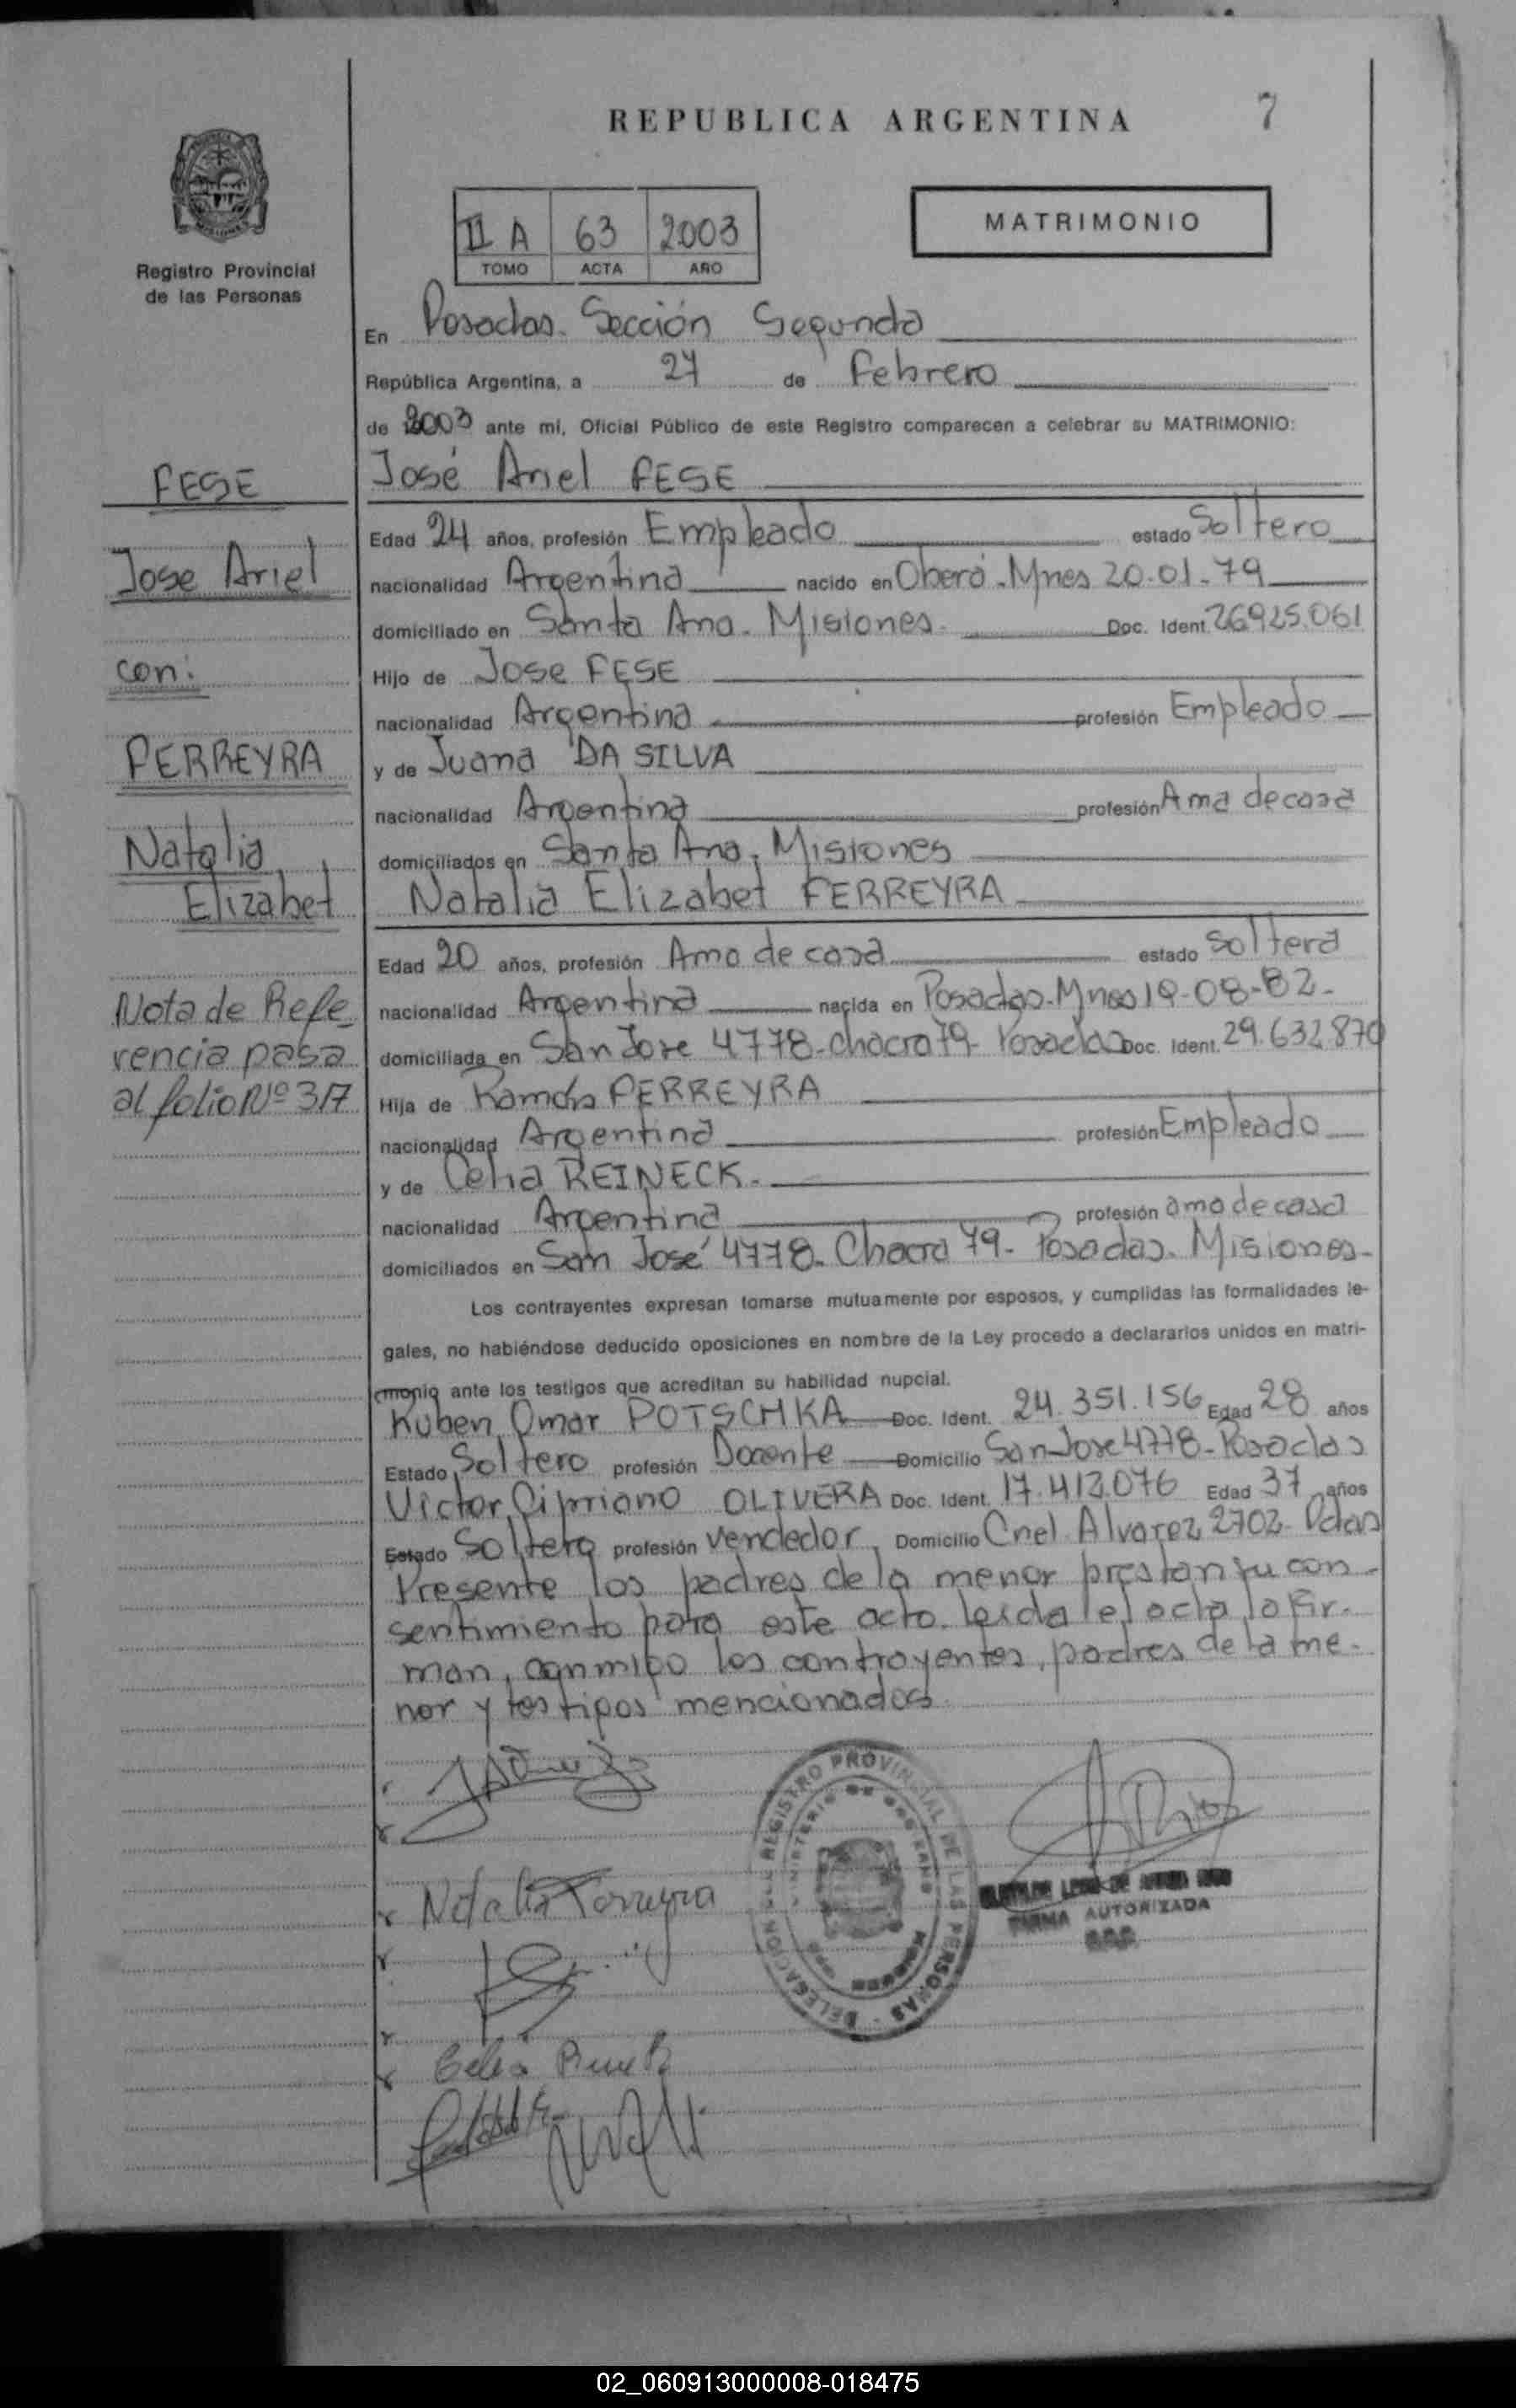 REPUBLICA ARGENTINA
7
II A 63 2003
TOMO ACTA AÑO
MATRIMONIO
Registro Provincial
de las Personas
En Posadas. Sección Segunda
República Argentina, a 27 de Febrero
de 2003 ante mí, Oficial Público de este Registro comparecen a celebrar su MATRIMONIO:
FESE
Jose Ariel
con:
FERREYRA
Natalia
Elizabet
Nota de Refe_
rencia pasa
al folio Nº 317
José Ariel FESE
Edad 24 años, profesión Empleado estado Soltero
nacionalidad Argentina nacido en Oberá-Mnes 20-01-79
domiciliado en Santa Ana-Misiones. Doc. Ident. 26925.061
Hijo de Jose FESE
nacionalidad Argentina profesión Empleado
y de Juana DA SILVA
nacionalidad Argentina profesión Ama de casa
domiciliados en Santa Ana, Misiones
Natalia Elizabet FERREYRA
Edad 20 años, profesión Ama de casa estado Soltera
nacionalidad Argentina nacida en Posadas-Mnes 19-08-82-
domiciliada en San Jose 4778-chacra 79- Posadas Doc. Ident. 29.632.870
Hija de Ramón FERREYRA
nacionalidad Argentina profesión Empleado
y de Celia REINECK.
nacionalidad Argentina profesión ama de casa
domiciliados en San José 4778- Chacra 79- Posadas. Misiones-
Los contrayentes expresan tomarse mutuamente por esposos, y cumplidas las formalidades le-
gales, no habiéndose deducido oposiciones en nombre de la Ley procedo a declararlos unidos en matri-
monio ante los testigos que acreditan su habilidad nupcial.
Ruben Omar POTSCHKA Doc. Ident. 24.351.156 Edad 28 años
Estado Soltero profesión Docente Domicilio San Jose 4778-Posadas
Victor Cipriano OLIVERA Doc. Ident. 17.412.076 Edad 37 años
Estado Soltero profesión vendedor Domicilio Cnel. Alvarez 2702- Pdas
Presente los padres de la menor prestan su con-
sentimiento para este acto. leida el acta la fir-
man, conmigo los contrayentes, padres de la me-
nor y testigos mencionados
Natalia Ferreyra
DELEGACION DEL REGISTRO PROVINCIAL DE LAS PERSONAS
FIRMA AUTORIZADA
Celia
02_060913000008-018475